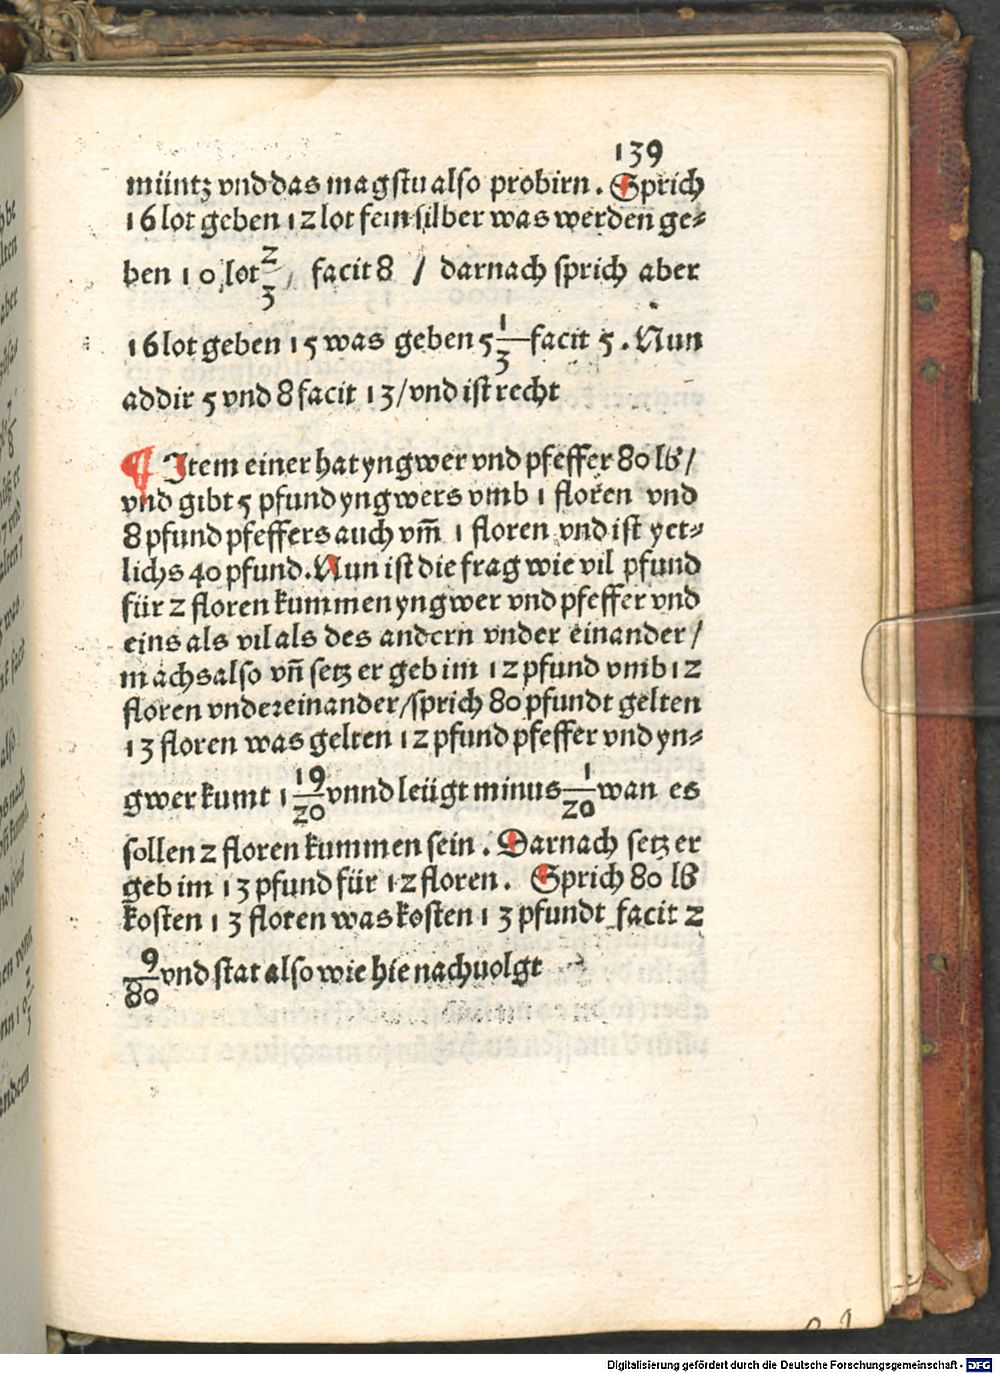 139
müntz vnd das magstu also probirn. Sprich
16 lot geben 12 lot fein silber was werden ge⸗
ben 10 lot 2/3 / facit 8 / darnach sprich aber
16 lot geben 15 was geben 5 1/3 facit 5. Nun
addir 5 vnd 8 facit 13/vnd ist recht
¶ Item einer hat yngwer vnd pfeffer 80 lb/
vnd gibt 5 pfund yngwers vmb 1 floren vnd
8 pfund pfeffers auch vm̄ 1 floren vnd ist yet⸗
lichs 40 pfund. Nun ist die frag wie vil pfund
für 2 floren kummen yngwer vnd pfeffer vnd
eins als vil als des andern vnder einander/
machs also vn̄ setz er geb im 12 pfund vmb 12
floren vndereinander/sprich 80 pfundt gelten
13 floren was gelten 12 pfund pfeffer vnd yn⸗
gwer kumt 1 19/20 vnnd leügt minus 1/20 wan es
sollen 2 floren kummen sein. Darnach setz er
geb im 13 pfund für 12 floren. Sprich 80 lb
kosten 13 floren was kosten 13 pfundt facit 2
9/80 vnd stat also wie hie nachuolgt
Digitalisierung gefördert durch die Deutsche Forschungsgemeinschaft - DFG